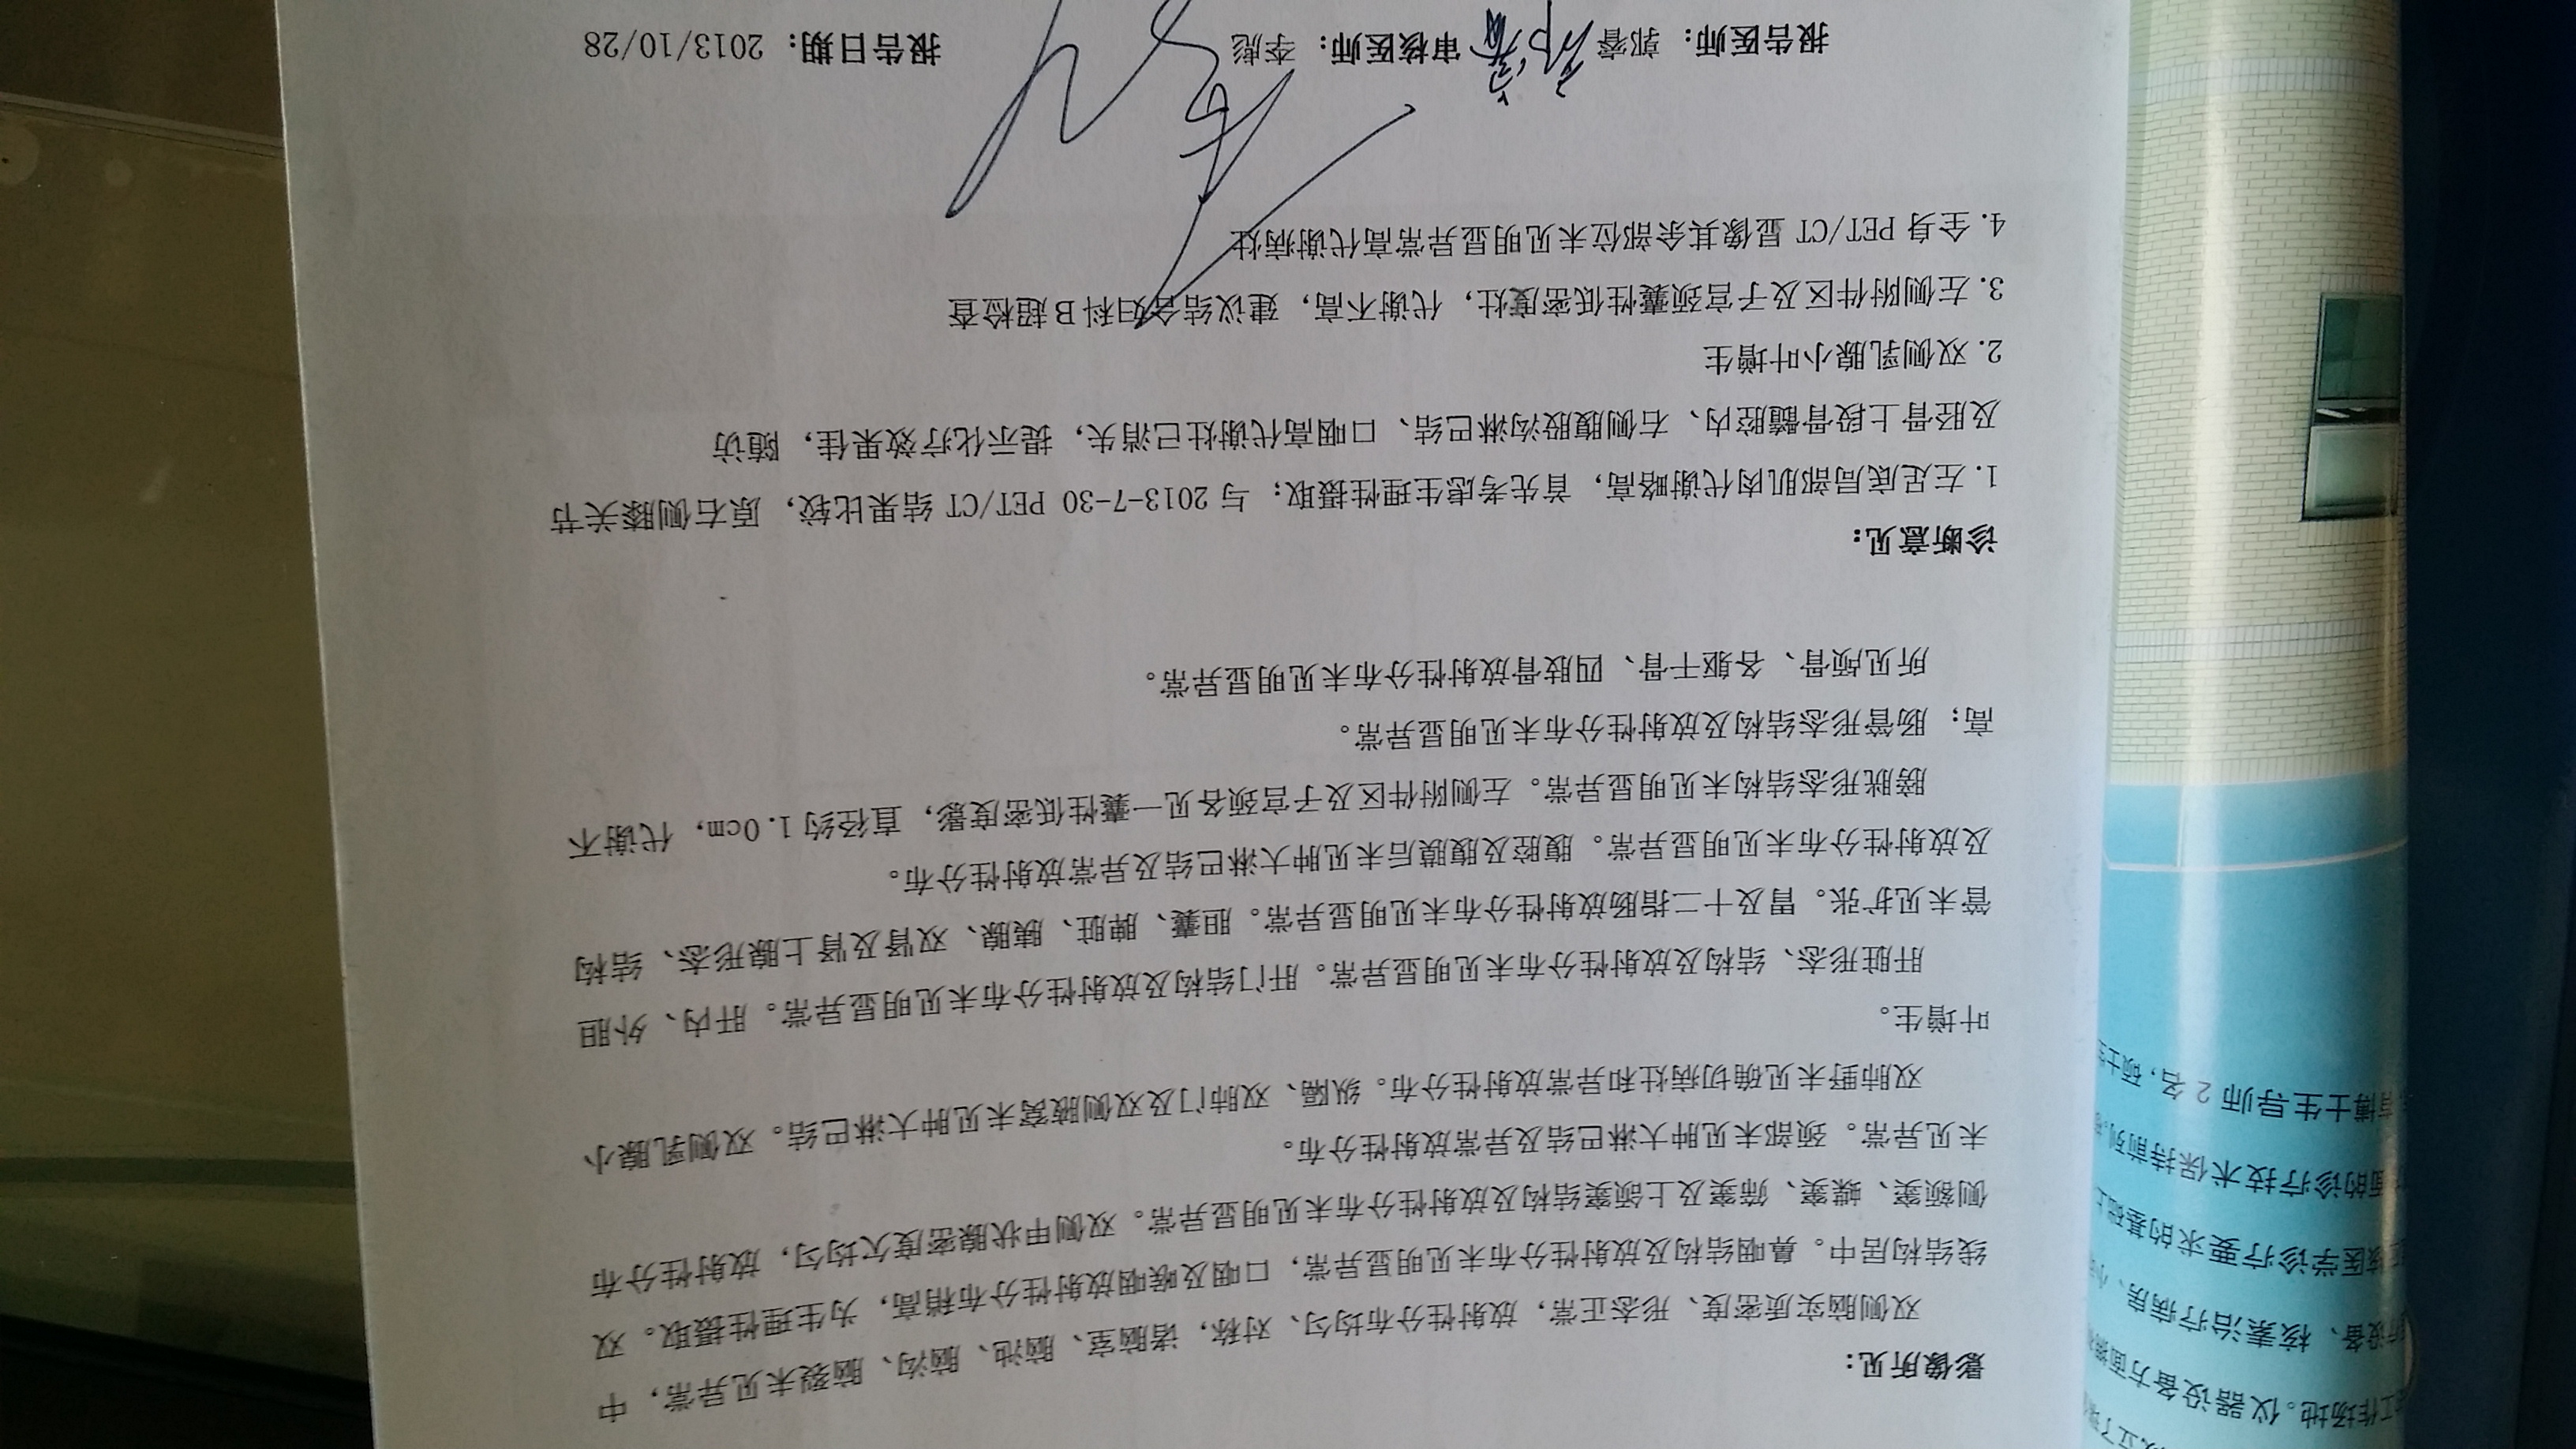 影像所见：
双侧脑实质密度、形态正常，放射性分布均匀、对称，诸脑室、脑池、脑沟、脑裂未见异常，中
线结构居中。鼻咽结构及放射性分布未见明显异常，口咽及喉咽放射性分布稍高，为生理性摄取。双
侧额窦、蝶窦、筛窦及上颌窦结构及放射性分布未见明显异常。双侧甲状腺密度欠均匀，放射性分布
未见异常。颈部未见肿大淋巴结及异常放射性分布。
双肺野未见确切病灶和异常放射性分布。纵隔、双肺门及双侧腋窝未见肿大淋巴结。双侧乳腺小
叶增生。
肝脏形态、结构及放射性分布未见明显异常。肝门结构及放射性分布未见明显异常。肝内、外胆
管未见扩张。胃及十二指肠放射性分布未见明显异常。胆囊、脾脏、胰腺、双肾及肾上腺形态、结构
及放射性分布未见明显异常。腹腔及腹膜后未见肿大淋巴结及异常放射性分布。
膀胱形态结构未见明显异常。左侧附件区及子宫颈各见一囊性低密度影，直径约1.0cm，代谢不
高；肠管形态结构及放射性分布未见明显异常。
所见颅骨、各躯干骨、四肢骨放射性分布未见明显异常。
诊断意见：
1.左足底局部肌肉代谢略高，首先考虑生理性摄取；与2013-7-30 PET/CT 结果比较，原右侧膝关节
及胫骨上段骨髓腔内、右侧腹股沟淋巴结、口咽高代谢灶已消失，提示化疗效果佳，随访
2.双侧乳腺小叶增生
3.左侧附件区及子宫颈囊性低密度灶，代谢不高，建议结合妇科B超检查
4.全身 PET/CT 显像其余部位未见明显异常高代谢病灶
报告医师：郭睿 审核医师：李彪 报告日期：2013/10/28
工作场地。仪器设备方面
设备、核素治疗病房、小
核医学诊疗要求的基础上
面的诊疗技术保持前列
博士生导师 2 名，硕士